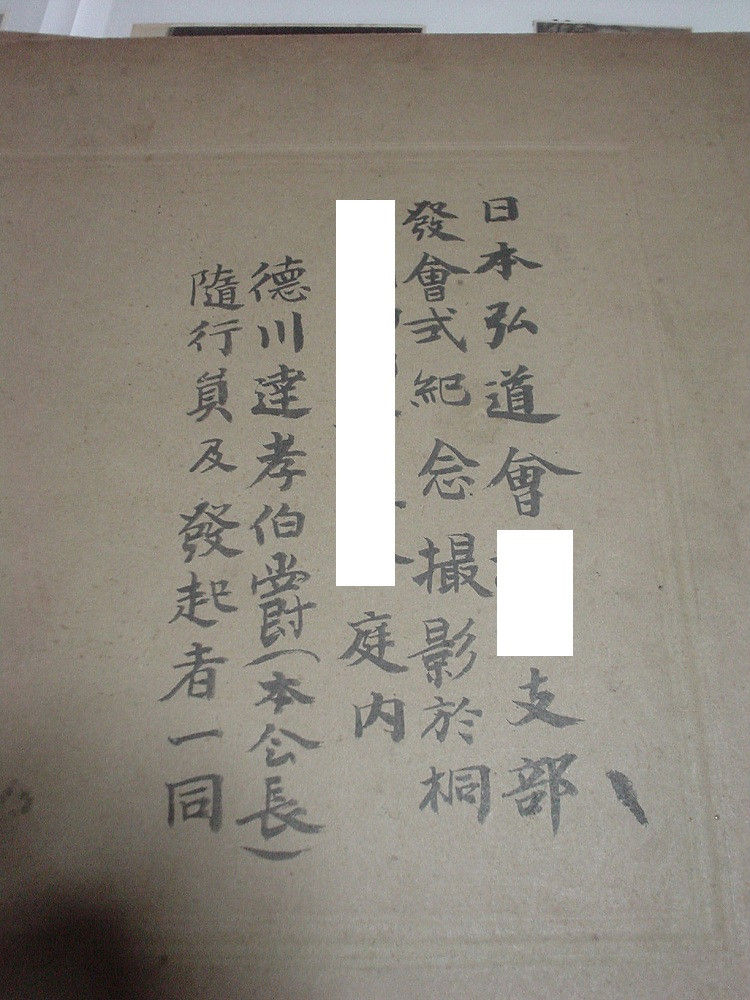 日本弘道會 支部
發會式紀念撮影於桐
庭内
德川達孝伯爵(本会長)
隨行員及發起者一同